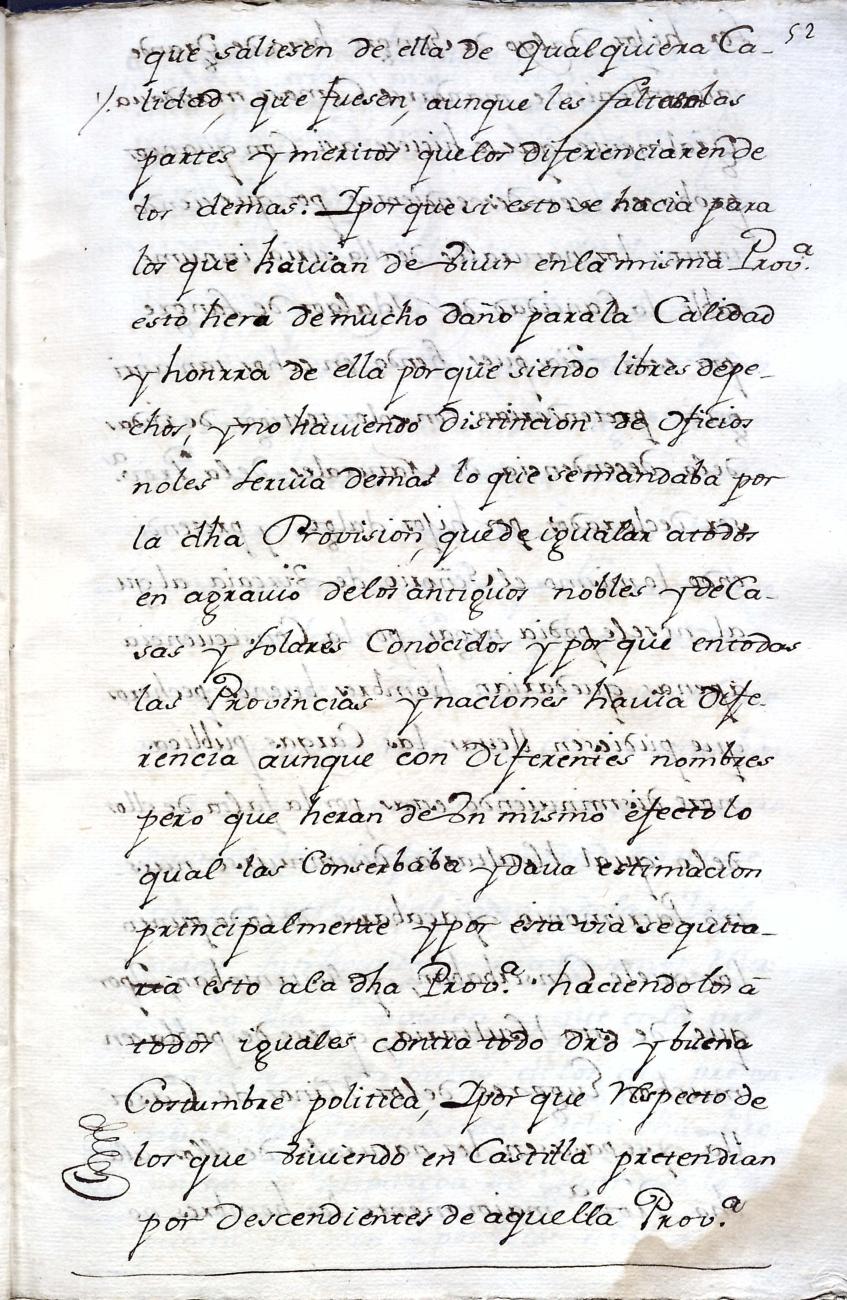 52
que saliesen de ella de qualquiera Ca-
lidad, que fuesen, aunque les faltasen las
partes y meritos que los diferenciaren de
los demas. Y porque si esto se hacia para
los que havian de vivir en la misma Prov.ª
esto hera de mucho daño para la Calidad
y honrra de ella porque siendo libres de pe-
chos, y no haviendo distincion de oficios
nobles servia demas lo que se mandaba por
la dha Provision, que de igualar a todos
en agravio de los antiguos nobles y de Ca-
sas y solares Conocidos y porque en todas
las Provincias y naciones havia dife-
rencia aunque con diferentes nombres
pero que heran de un mismo efecto lo
qual las Conserbaba y dava estimacion
principalmente y por esta via se quita-
ria esto a la dha Prov.ª haciendolos á
todos iguales contra todo dro y buena
Costumbre politica, Y porque respecto de
los que viviendo en Castilla pretendian
por descendientes de aquella Prov.ª